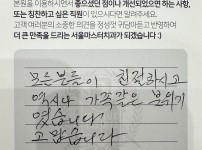 본원을 이용하시면서 좋으셨던 점이나 개선되었으면 하는 사항,
또는 칭찬하고 싶은 직원이 있으시다면 알려주세요.
고객 여러분의 소중한 의견을 정성껏 귀담아듣고 반영하여
더 큰 만족을 드리는 서울마스터치과가 되겠습니다 :)
모든분들이 친절하시고
역시나 가족같은 분위기
였습니다
고맙습니다